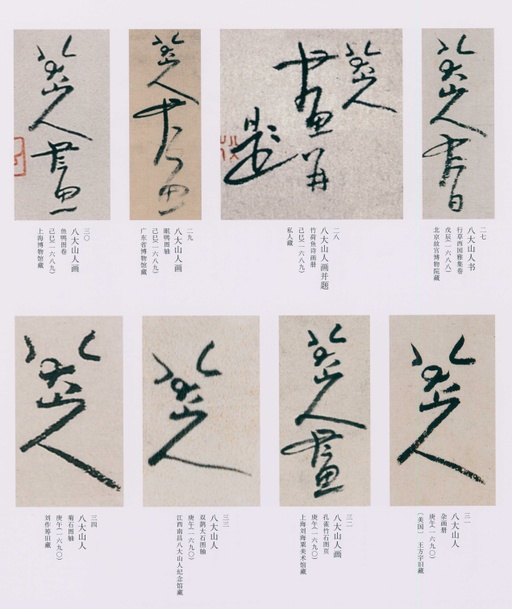 八大山人書
二七
八大山人书
行草西园雅集卷
戊辰（一六八八）
北京故宫博物院藏
八大山人
畫并
題
二八
八大山人画并题
竹荷鱼诗画册
己巳（一六八九）
私人藏
八大山人畫
二九
八大山人画
眠鸭图轴
己巳（一六八九）
广东省博物馆藏
八大山人畫
三〇
八大山人画
鱼鸭图卷
己巳（一六八九）
上海博物馆藏
八大山人
三一
八大山人
杂画册
庚午（一六九〇）
〔美国〕王方宇旧藏
八大山人畫
三二
八大山人画
孔雀竹石图页
庚午（一六九〇）
上海刘海粟美术馆藏
八大山人
三三
八大山人
双鹊大石图轴
庚午（一六九〇）
江西南昌八大山人纪念馆藏
八大山人
三四
八大山人
菊石图轴
庚午（一六九〇）
刘作筹旧藏